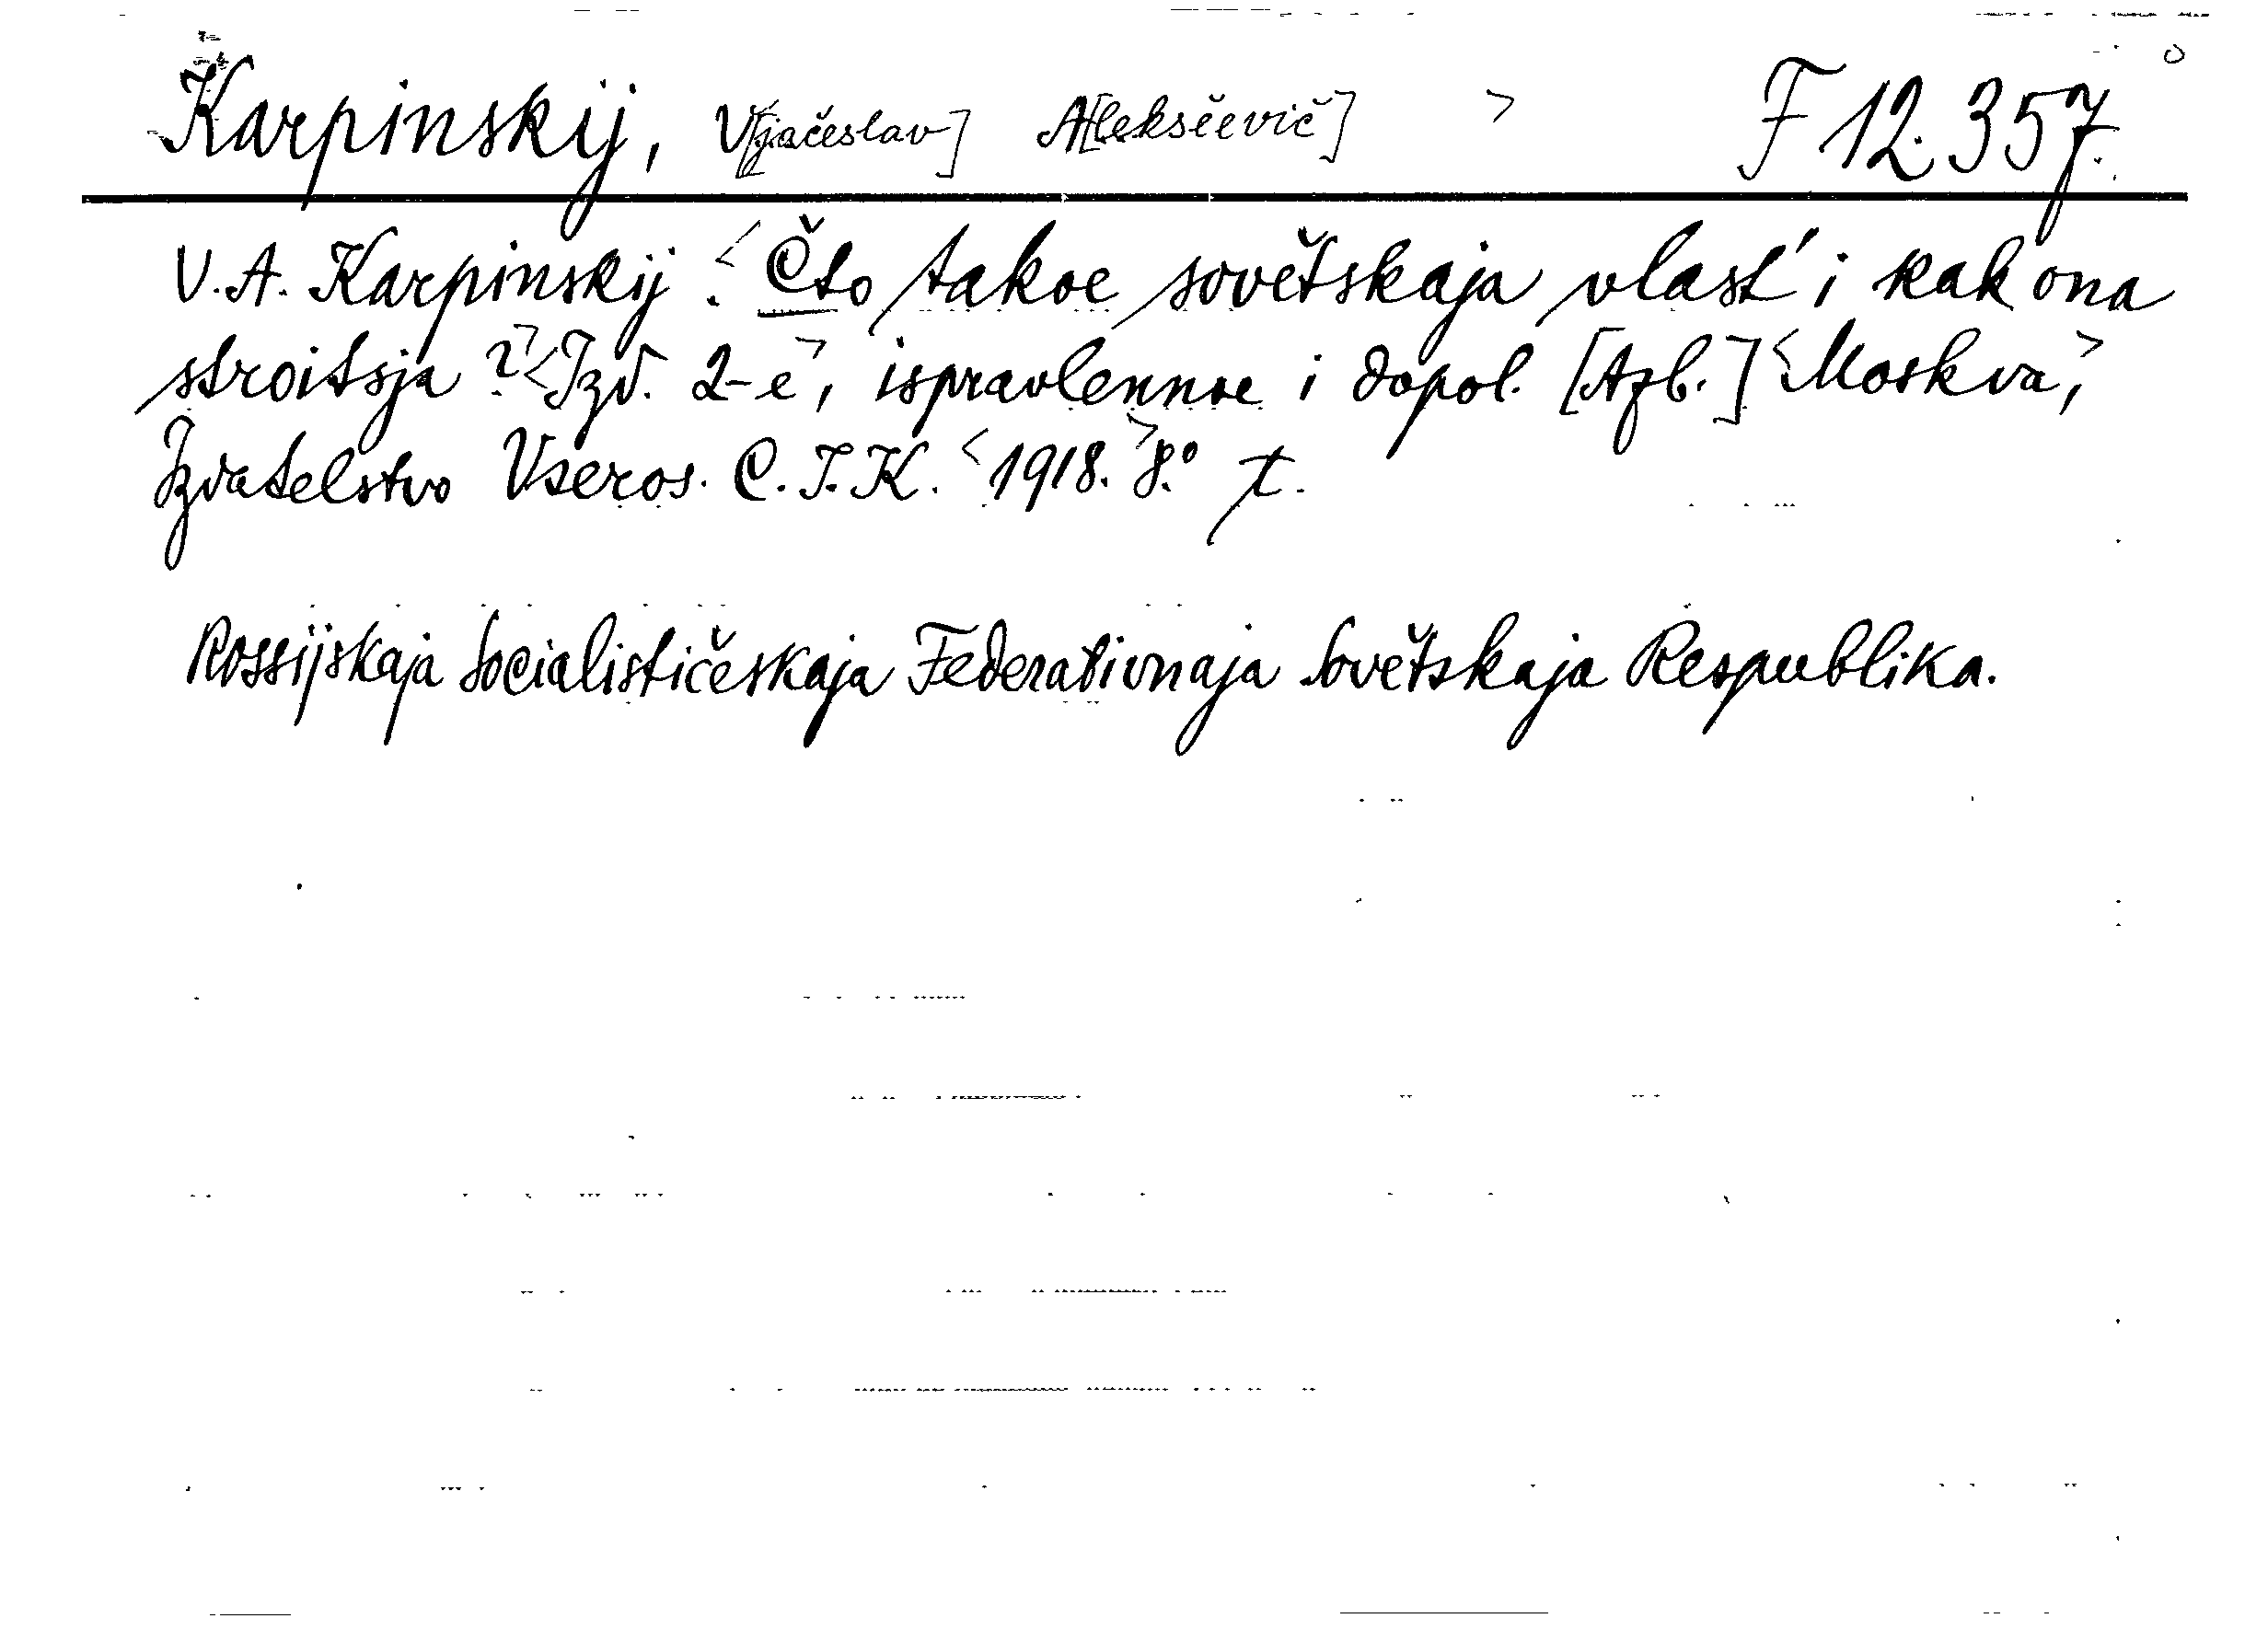 Karpinskij, V[jačeslav] A[leksěevič] > F 12.357.
V. A. Karpinskij : <Čto takoe sovětskaja vlast' i kak ona
stroitsja ?> <Izd. 2-e>, ispravlennoe i dopol. [Azb.] <Moskva,>
Izdatelstvo Vseros. C.I.K. <1918.> 8.º
Rossijskaja Socialističeskaja Federativnaja Sovětskaja Respublika.